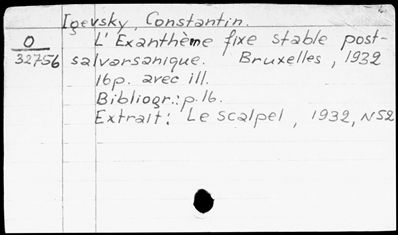 Igevsky, Constantin.
O
32756
L'Exanthème fixe stable post-
salvarsanique. Bruxelles, 1932
16p. avec ill.
Bibliogr.: p.16.
Extrait: Le Scalpel, 1932, N52